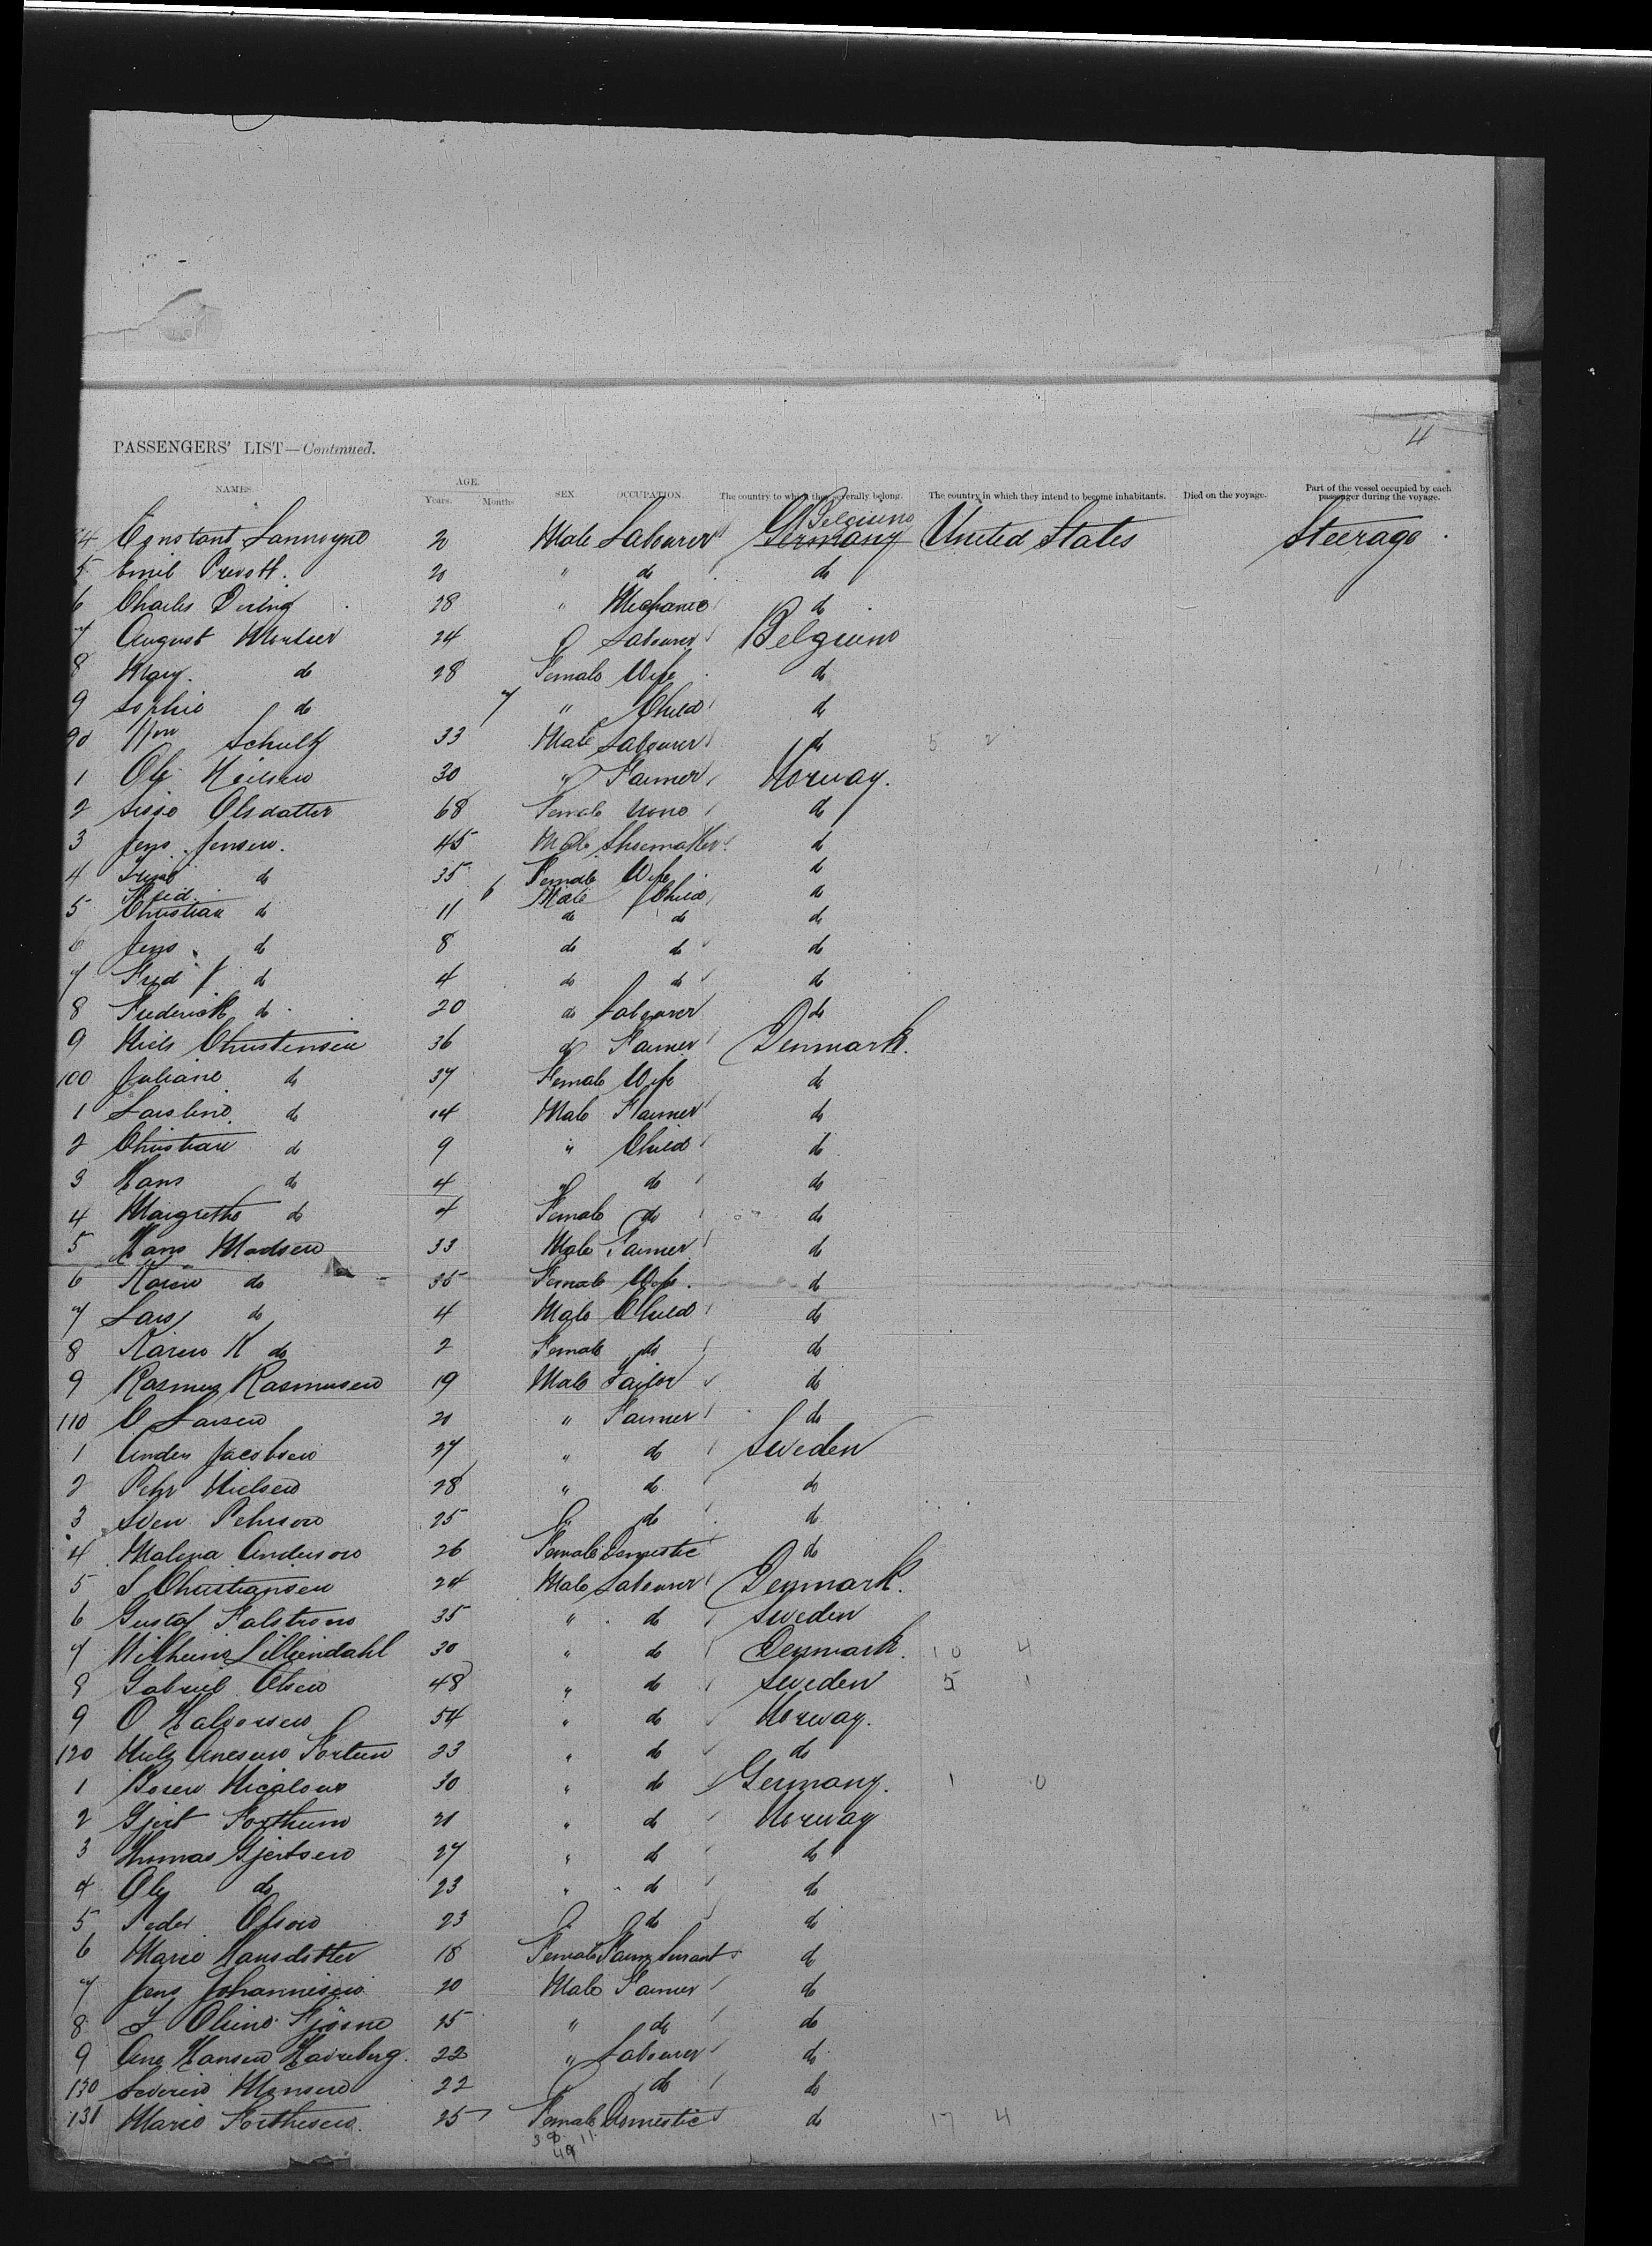 4
PASSENGERS' LIST—Continued.
NAMES. AGE. Years. Months SEX OCCUPATION. The country to which they severally belong. The country in which they intend to become inhabitants. Died on the voyage. Part of the vessel occupied by each passenger during the voyage.
Belgium
4 Constant Lannoyne 20 Male Labourer Germany United States Steerage
5 Emil Prevott. 20 " do do
6 Charles Dering 28 " Mechanic do
7 August 24 " Labourer Belgium
8 Mary do 28 Female Wife do
9 Sophie do 7 " Child do
90 Wm Schultz 33 Male Labourer do 5 2
1 Ole Neilsen 30 " Farmer Norway.
2 Sissie Olsdatter 68 Female None do
3 Jens Jensen. 45 Male Shoemaker do
4 do 35 Female Wife do
Fred. 6 Male Child do
5 Christian do 11 do do do
6 Jens do 8 do do do
7 Fred J do 4 do do do
8 Frederick do 20 do Labourer do
9 Niels Christensen 36 do Farmer Denmark.
100 Juliane do 37 Female Wife do
1 Larsline do 14 Male Farmer do
2 Christian do 9 " Child do
3 Hans do 4 " do do
4 Margrethe do 4 Female do do
5 Hans Madsen 33 Male Farmer do
6 Karen do 35 Female Wife. do
7 Lars do 4 Male Child do
8 Karen K do 2 Female do do
9 Rasmus Rasmussen 19 Male Tailor do
110 C Larsen 20 " Farmer do
1 Anders Jacobsen 27 " do Sweden
2 Pehr Nielsen 28 " do do
3 Sven Pehrson 25 " do do
4 Malena Anderson 26 Female Domestic do
5 S Christiansen 24 Male Labourer Denmark.
6 Gustaf Falstrom 35 " do Sweden
7 Wilhelm Lilliendahl 30 " do Denmark. 10 4
8 Gabriel Olsen 48 " do Sweden 5 1
9 O Halvorsen 54 " do Norway.
120 Nielz Anesen Fortun 23 " do do
1 Nicalous 30 " do Germany. 1 0
2 Gjert Forthun 21 " do Norway
3 Thomas Gjertsen 27 " do do
4 Ole do 23 " do do
5 Peder Olson 23 " do do
6 Marie Hansdotter 18 Female Farm Servant do
7 Jens Johannesen 20 Male Farmer do
8 25 " do do
9 Hansen 22 " Labourer do
130 Severin Monsen 22 " do do
131 Marie Forthesen. 25 Female Domestic do 17 4
38 11
49